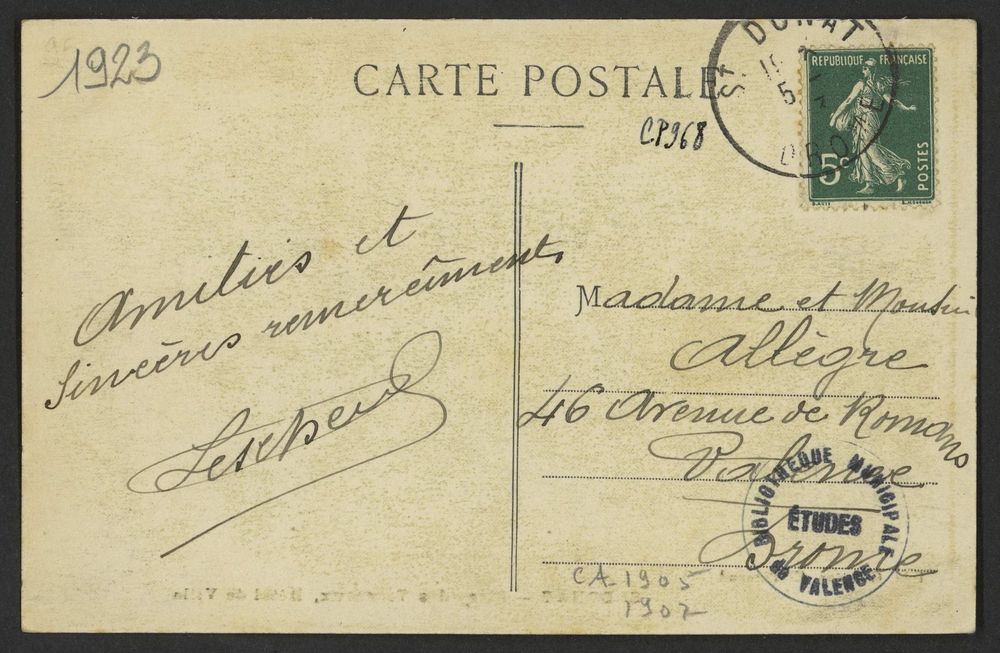 1923
CARTE POSTALE
C.P968
St DONAT
DROME
REPUBLIQUE FRANÇAISE
5c
POSTES
Amitiés et
sincères remerciments
Madame et Monsieur
Allègre
46 Avenue de Romans
Valence
Drome
BIBLIOTHEQUE MUNICIPALE
ÉTUDES
DE VALENCE
CA 1905
1907